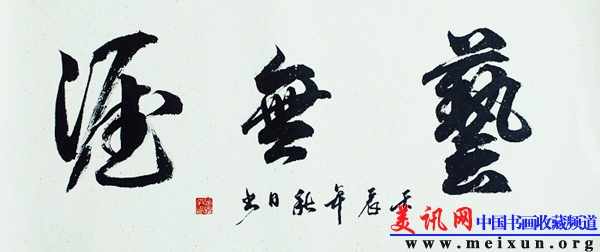 藝無涯
壬辰年秋日书
美讯网中国书画收藏频道
www.meixun.org